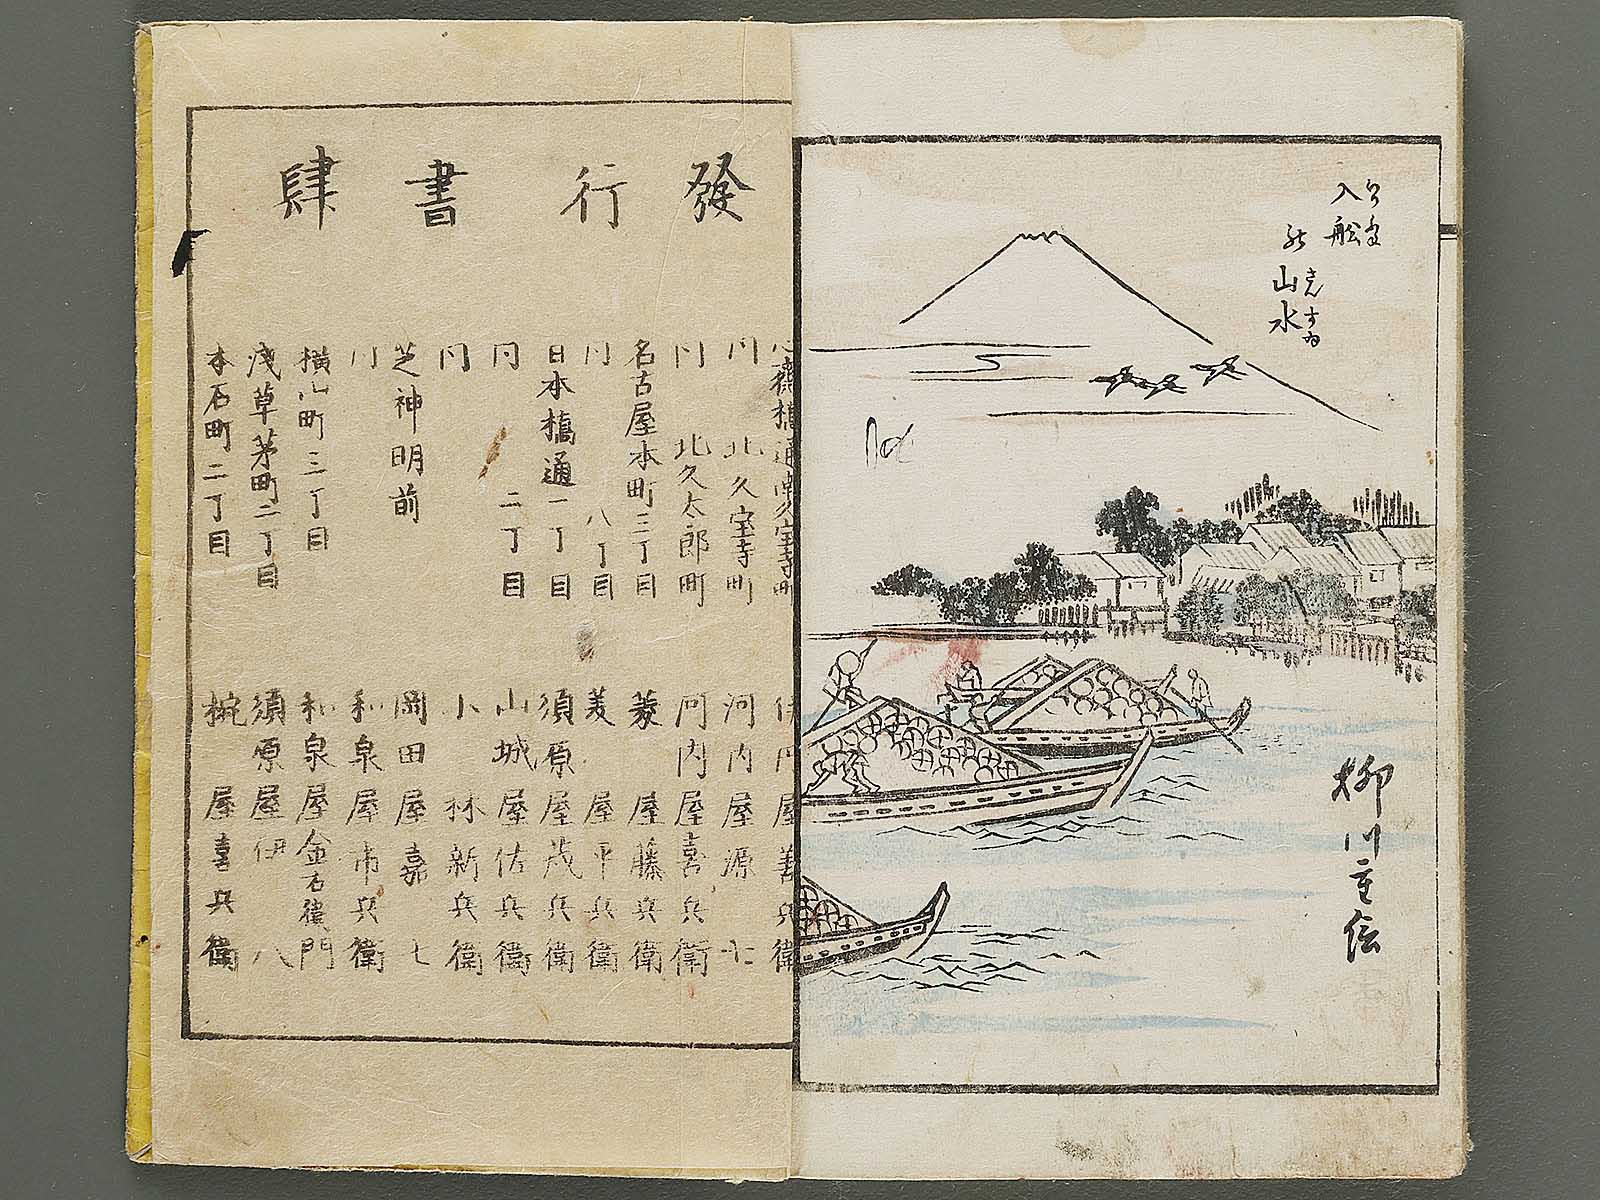 入舩
の山水
さんすゐ
柳川重信
發行書肆
心齋橋通南久宝寺町 伊丹屋善兵衛
同 北久宝寺町 河内屋源七
同 北久太郎町 河内屋喜兵衛
名古屋本町三丁目 菱屋藤兵衛
同 八丁目 菱屋平兵衛
日本橋通一丁目 須原屋茂兵衛
同 二丁目 山城屋佐兵衛
同 小林新兵衛
芝神明前 岡田屋嘉七
同 和泉屋市兵衛
横山町三丁目 和泉屋金右衛門
淺草茅町二丁目 須原屋伊八
本石町二丁目 椀屋喜兵衛